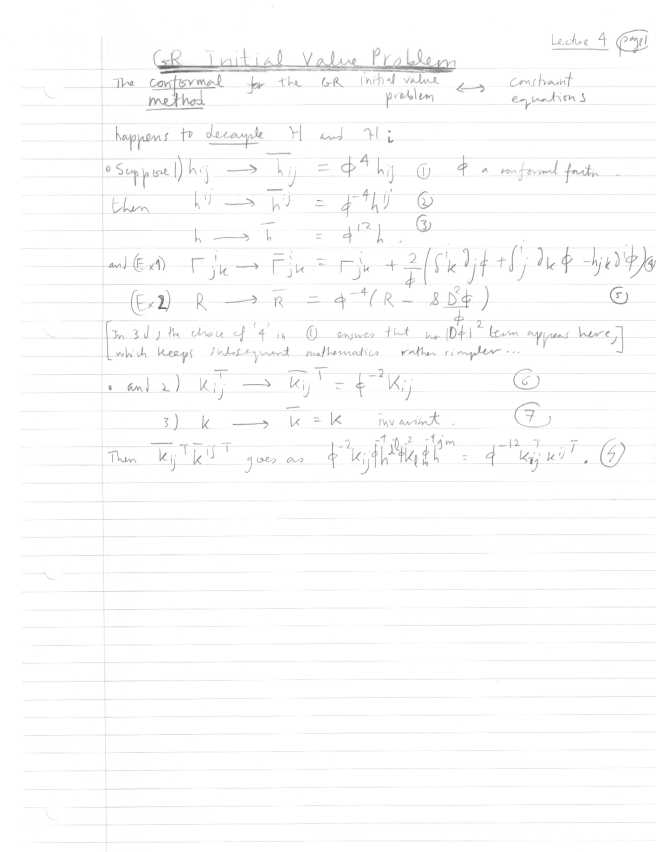 Lecture 4 page 1
GR Initial Value Problem
The conformal for the GR initial value ↔ constraint
method problem equations
happens to decouple H and H i
• Suppose 1) hij → h̄ij = ϕ^4 hij ① ϕ a conformal factor.
then h^ij → h̄^ij = ϕ^-4 h^ij ②
h → h̄ = ϕ^12 h. ③
and (Ex 1) Γ^i_jk → Γ̄^i_jk = Γ^i_jk + 2/ϕ (δ^i_k ∂_jϕ + δ^i_j ∂_kϕ - h_jk ∂^iϕ) ④
(Ex 2) R → R̄ = ϕ^-4 (R - 8 D²ϕ/ϕ) ⑤
[In 3d, the choice of '4' in ① ensures that no |Dϕ|² term appears here,
which keeps subsequent mathematics rather simpler...]
• and 2) K_ij^T → K̄_ij^T = ϕ^-2 K_ij ⑥
3) K → K̄ = K invariant. ⑦
Then K̄_ij^T K̄^ij T goes as = ϕ^-12 K_ij^T K^ij T.